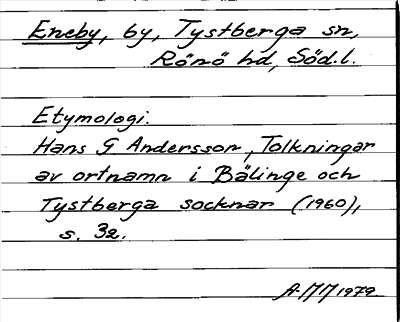 Eneby, by, Tystberga sn,
Rönö hd, Söd.l.
Etymologi.
Hans G Andersson, Tolkningar
av ortnamn i Bälinge och
Tystberga socknar (1960),
s. 32.
1979